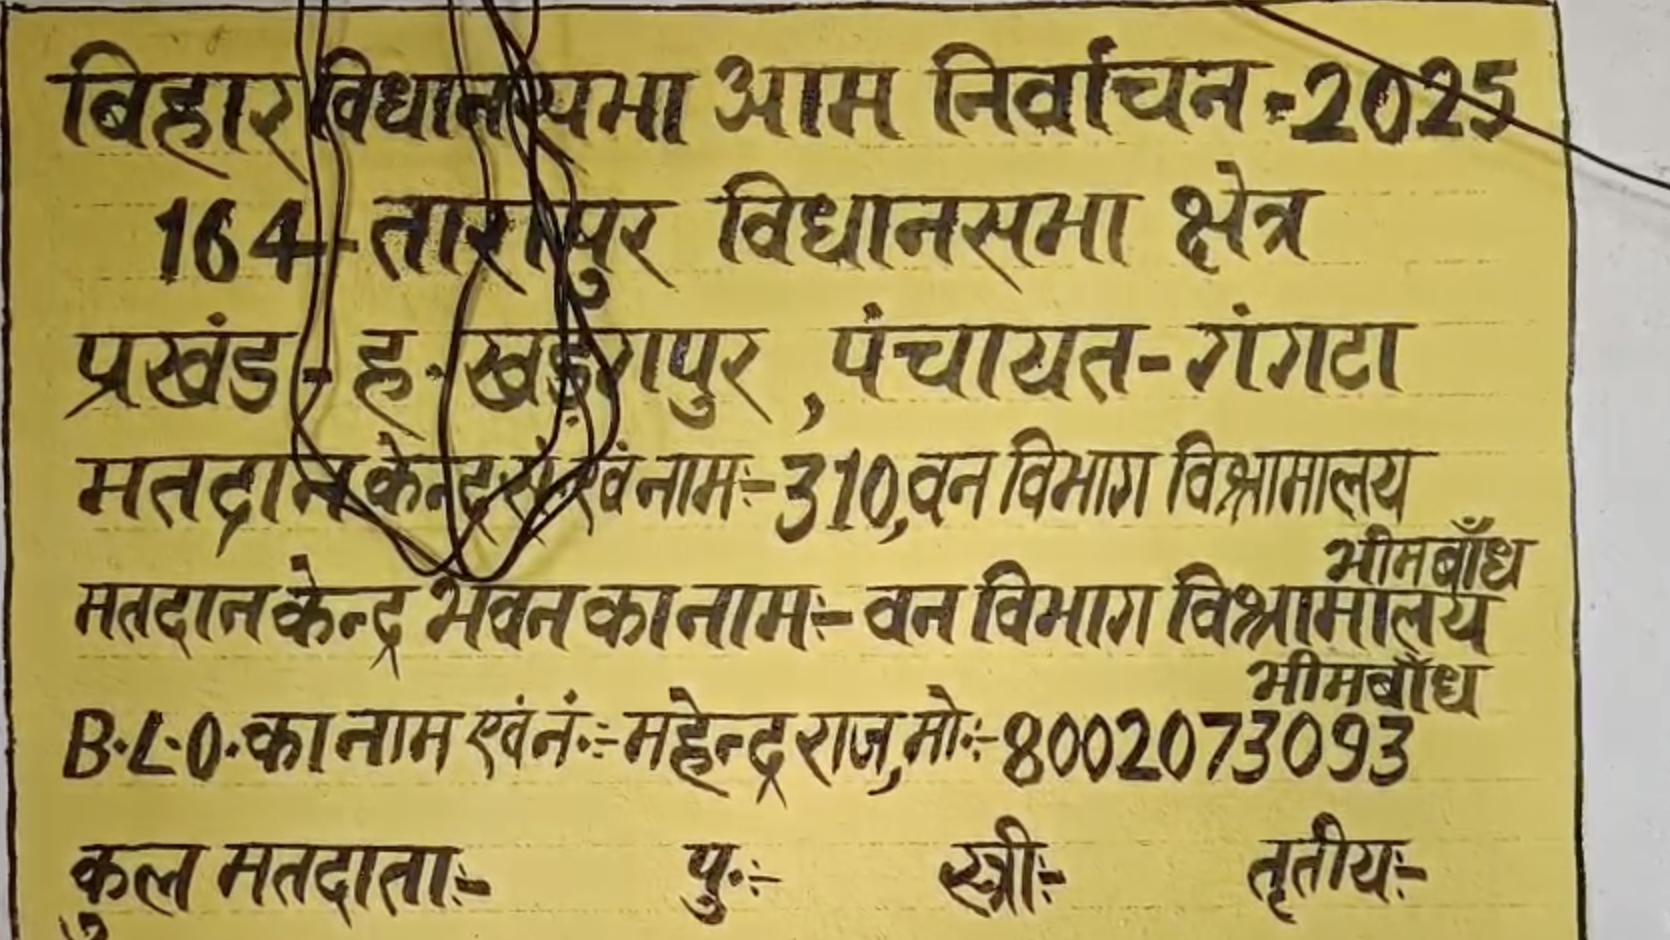 बिहार विधानसभा आम निर्वाचन-2025
164-तारापुर विधानसभा क्षेत्र
प्रखंड-ह.खड़गपुर, पंचायत-गंगटा
मतदान केन्द्र सं० एवं नाम:-310,वन विभाग विश्रामालय
भीमबाँध
मतदान केन्द्र भवन का नाम:- वन विभाग विश्रामालय
भीमबाँध
B.L.O. का नाम एवं नं.:- महेन्द्र राज, मो.:-8002073093
कुल मतदाता:- पु.:- स्त्री:- तृतीय:-